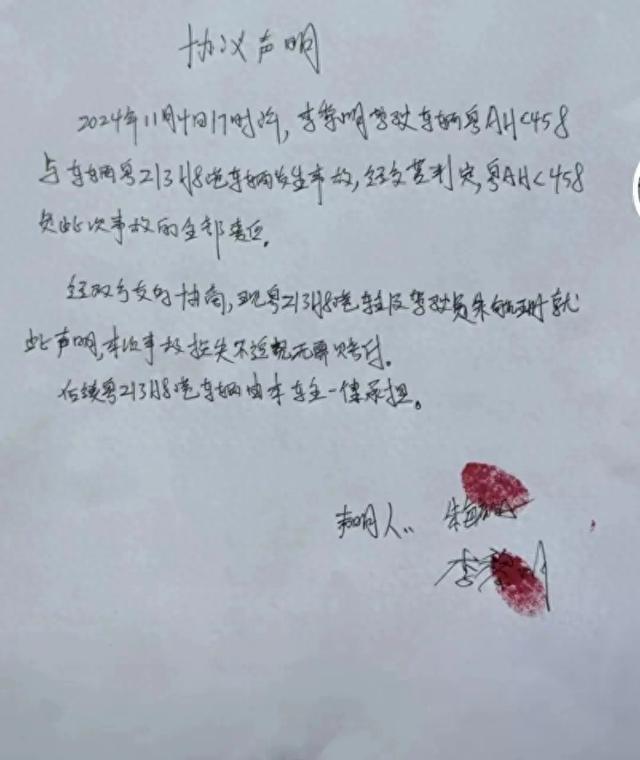 协议声明
2024年11月4日17时许,李黎明驾驶车辆粤AH<458
与车辆粤Z13H8港车辆发生事故,经交警判定,粤AH<458
负此次事故的全部责任。
经双方友好协商,现粤Z13H8港车主及驾驶员朱就
此声明,本次事故损失不追究无需赔付。
后续粤Z13H8港车辆由本车主一律承担。
声明人: 朱
李明